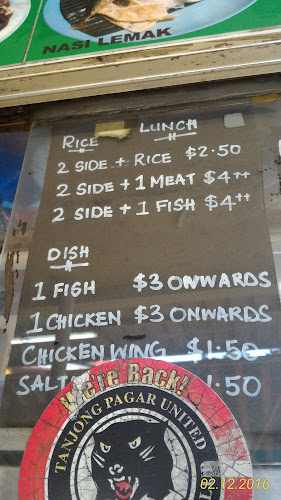 NASI LEMAK
RICE LUNCH
2 SIDE + RICE $2.50
2 SIDE + 1 MEAT $4++
2 SIDE + 1 FISH $4++
DISH
1 FISH $3 ONWARDS
1 CHICKEN $3 ONWARDS
CHICKEN WING $1.50
SALT 1.50
We're Back!
TANJONG PAGAR UNITED
02.12.2016